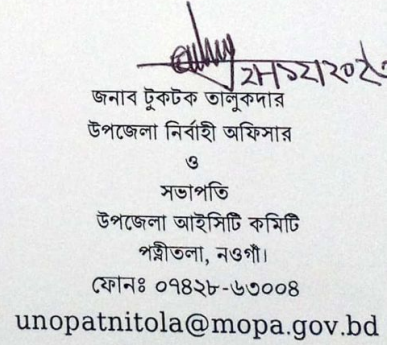 জনাব টুকটুক তালুকদার
উপজেলা নির্বাহী অফিসার
ও
সভাপতি
উপজেলা আইসিটি কমিটি
পত্নীতলা, নওগাঁ।
ফোনঃ ০৭৪২৮-৬৩০০৪
unopatnitola@mopa.gov.bd